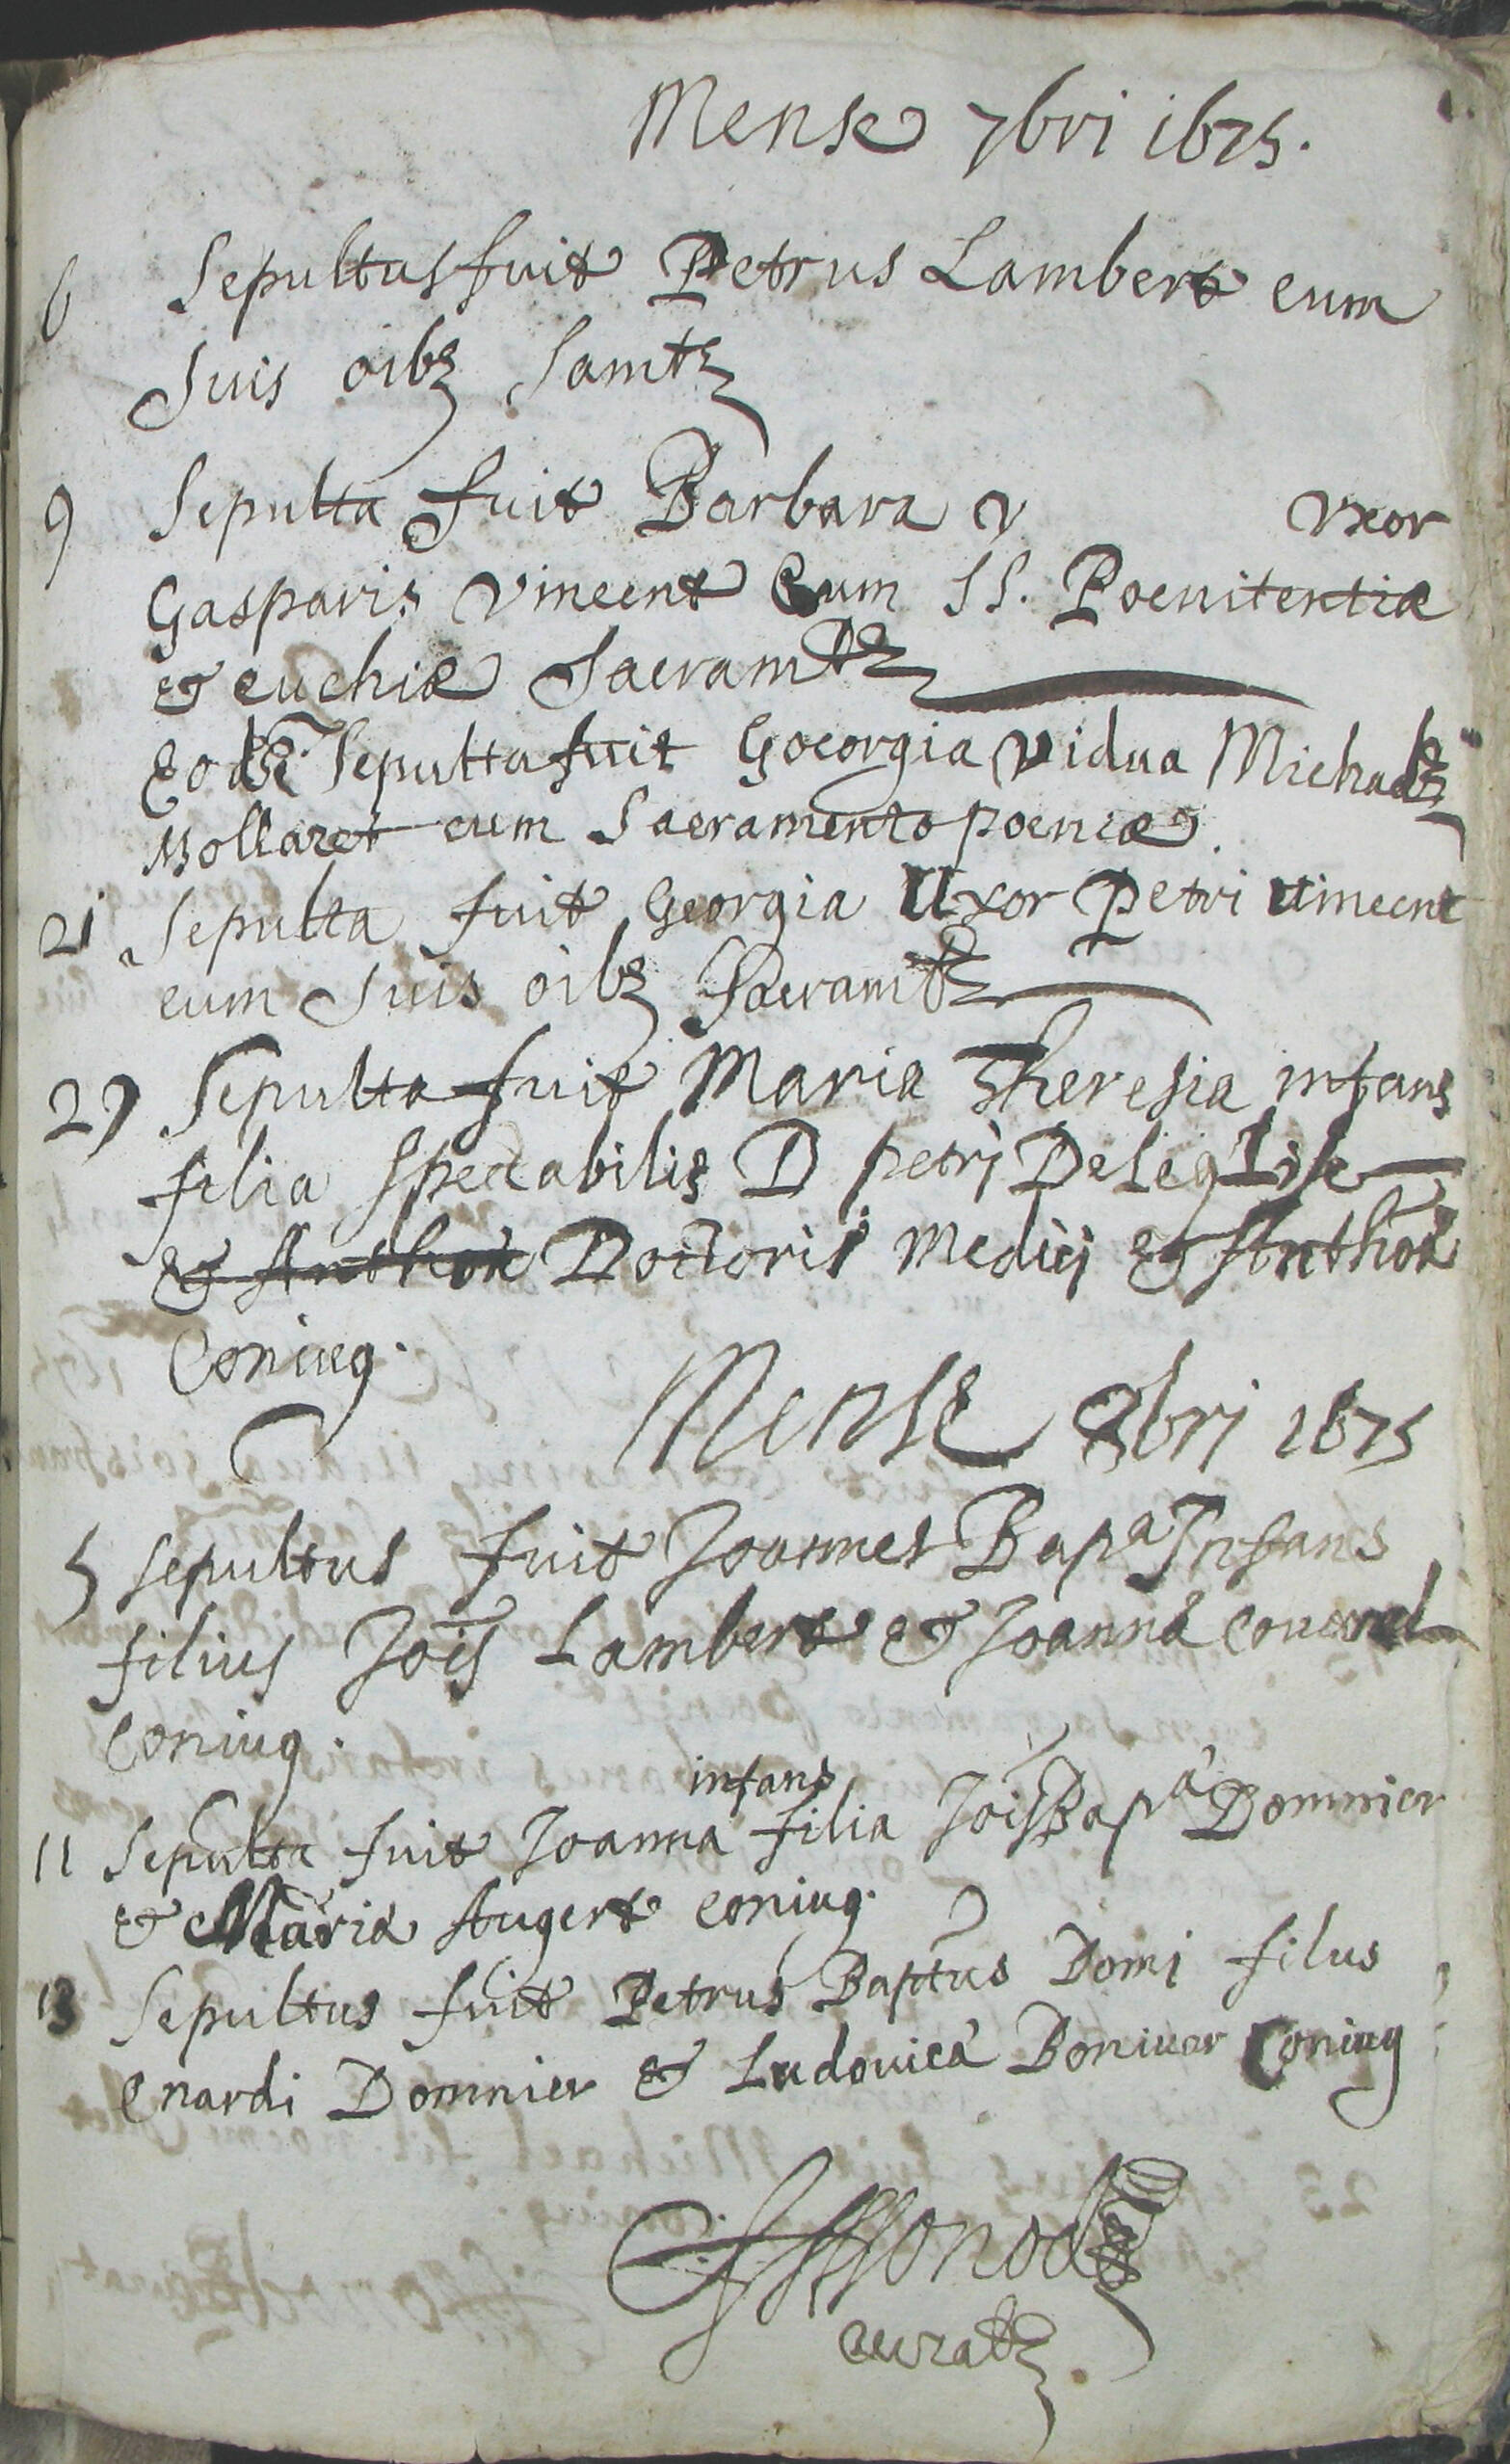 Mense 7bri 1675.
6 Sepultus fuit Petrus Lambert cum
suis oibz samtz
9 Sepulta fuit Barbara v vxor
Gasparis vincent Cum SS. Poenitentiæ
& euchiæ Sacramtz
Eodē Sepulta fuit Goeorgia vidua Michaelz
Mollaret cum Sacramento poeniæ.
21 Sepulta fuit Georgia Uxor Petri vincent
cum suis oibz Sacramtz
29 Sepulta fuit Maria Theresia infans
filia Spectabilis D petri Deleglise
& Anthoa Doctoris Medici & Anthoa
Coniug.
Mense 8bri 1675
5 Sepultus fuit Joannes Bapa Infans
filius Jois Lambert & Joanna
Coniug.
infans
11 Sepulta fuit Joanna filia Jois Bapa Domnier
& Maria Augert coniug.
13 Sepultus fuit Petrus Baptus Domi filus
Enardi Domnier & Ludovica Boniver Coniug
curatz.